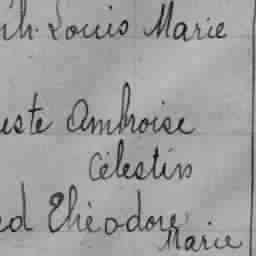 ph Louis Marie
uste Ambroise
Célestin
ed Théodore
Marie